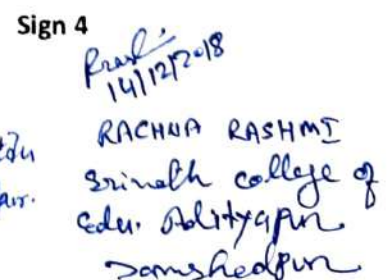 Sign 4
14/12/2018
RACHNA RASHMI
Edu
Srinath college of
Edu. Adityapur
Jamshedpur